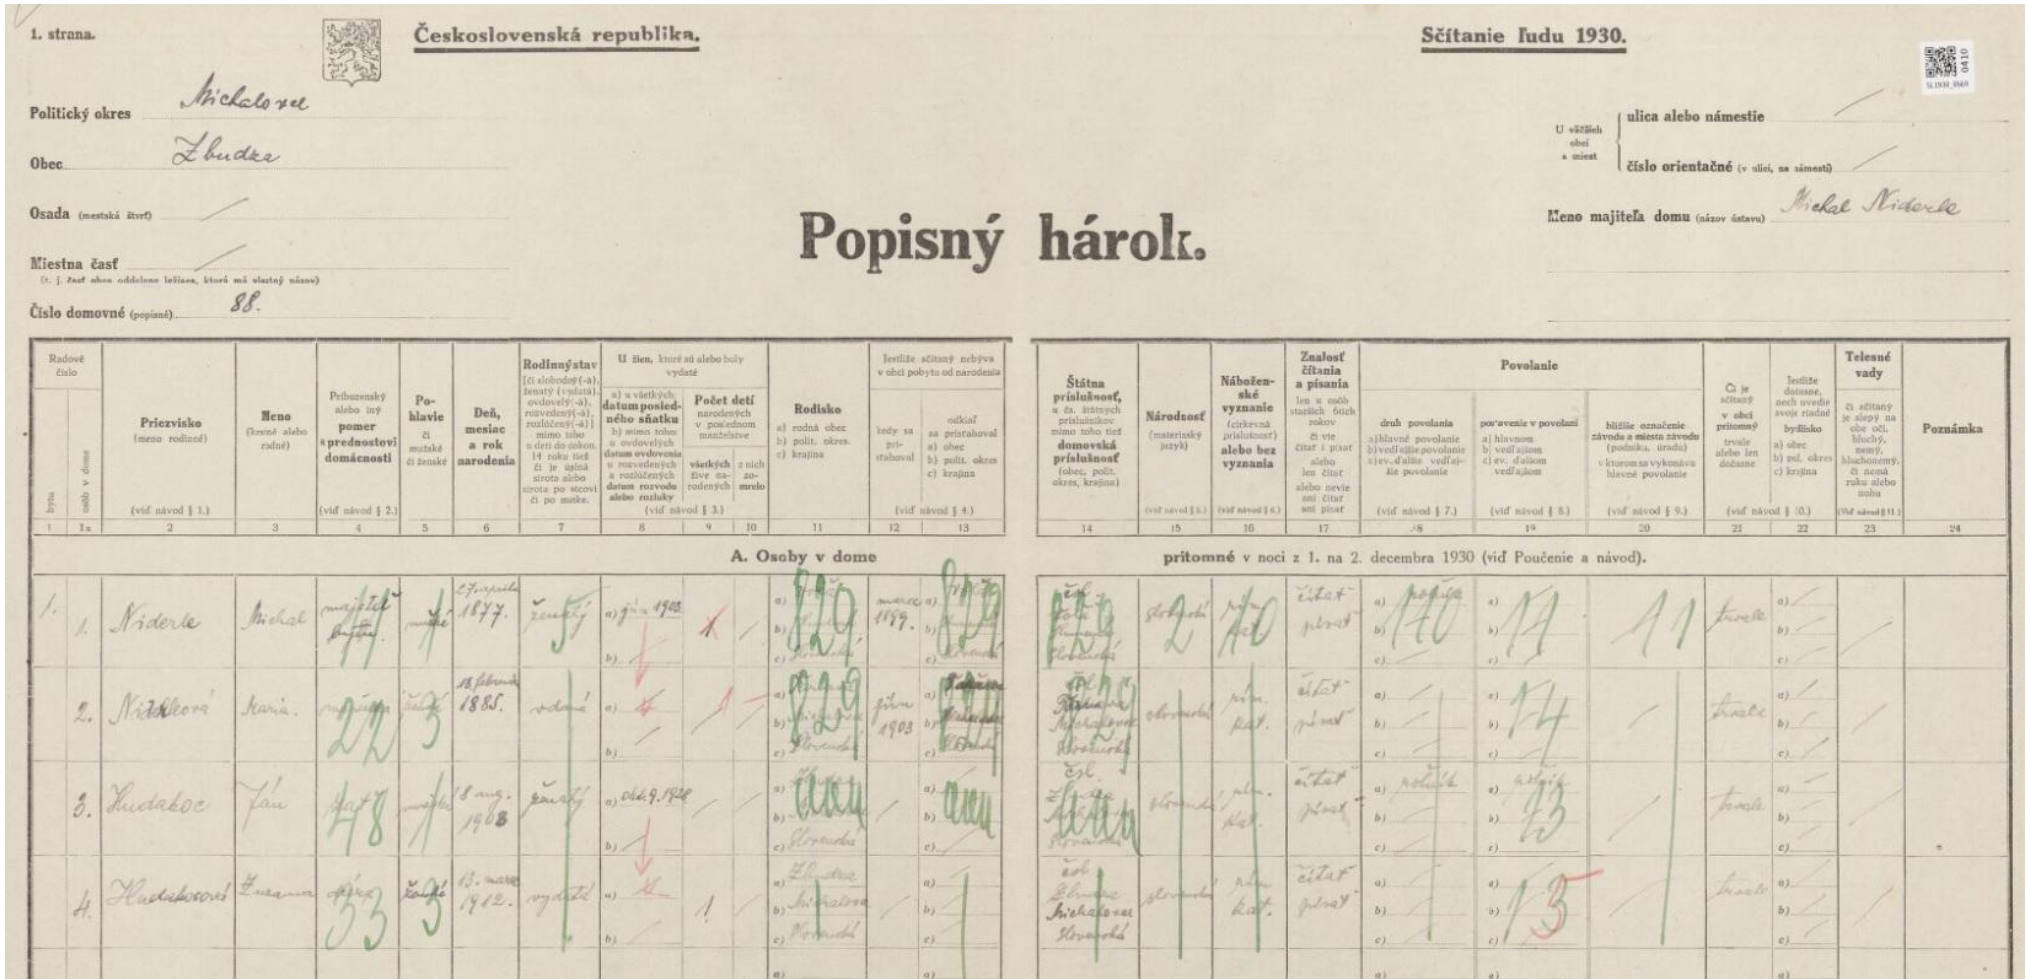 1. strana.
Československá republika.
Sčítanie ľudu 1930.
0410
Politický okres Michalovce
Obec Zbudza
Osada (mestská štvrť)
Miestna časť
(t. j. časť obce oddelene ležiaca, ktorá má vlastný názov)
Číslo domovné (popisné) 88.
U väčších obcí a miest
ulica alebo námestie
číslo orientačné (v ulici, na námestí)
Meno majiteľa domu (názov ústavu) Michal Niderle
Popisný hárok.
Radové číslo
bytu
osôb v dome
Priezvisko
(meno rodinné)
(viď návod § 1.)
Meno
(krstné alebo rodné)
Príbuzenský alebo iný pomer k prednostovi domácnosti
(viď návod § 2.)
Pohlavie
či mužské či ženské
Deň, mesiac a rok narodenia
Rodinný stav
[či slobodný(-á), ženatý (vydatá), ovdovelý(-á), rozvedený(-á), rozlúčený(-á)] mimo toho u detí do dokon. 14 roku tiež či je úplná sirota alebo sirota po otcovi či po matke.
U žien, ktoré sú alebo boly vydaté
a) u všetkých datum posledného sňatku
b) mimo toho: u ovdovelých datum ovdovenia u rozvedených a rozlúčených datum rozvodu alebo rozluky
Počet detí
narodených v poslednom manželstve
všetkých žive narodených
z nich zomrelo
(viď návod § 3.)
Rodisko
a) rodná obec
b) polit. okres.
c) krajina
Jestliže sčítaný nebýva v obci pobytu od narodenia
kedy sa pristahoval
odkiaľ sa pristahoval
a) obec
b) polit. okres
c) krajina
(viď návod § 4.)
Štátna príslušnosť,
u čs. štátnych príslušníkov mimo toho tiež
domovská príslušnosť
(obec, polit. okres, krajina)
Národnosť
(materinský jazyk)
(viď návod § 5.)
Náboženské vyznanie
(cirkevná príslušnosť)
alebo bez vyznania
(viď návod § 6.)
Znalosť čítania a písania
len u osôb starších 6tich rokov
či vie čítať i písať alebo len čítať alebo nevie ani čítať ani písať
Povolanie
druh povolania
a) hlavné povolanie
b) vedľajšie povolanie
c) ev. ďalšie vedľajšie povolanie
(viď návod § 7.)
postavenie v povolaní
a) hlavnom
b) vedľajšom
c) ev. ďalšom vedľajšom
(viď návod § 8.)
bližšie označenie závodu a miesta závodu (podniku, úradu)
v ktorom sa vykonáva hlavné povolanie
(viď návod § 9.)
Či je sčítaný v obci prítomný trvale alebo len dočasne
Jestliže dočasne, nech uvedie svoje riadné bydlisko
a) obec
b) pol. okres
c) krajina
(viď návod § 10.)
Telesné vady
či sčítaný je slepý na obe oči, hluchý, nemý, hluchonemý, či nemá ruku alebo nohu
(Viď návod § 11.)
Poznámka
1 1a 2 3 4 5 6 7 8 9 10 11 12 13 14 15 16 17 18 19 20 21 22 23 24
A. Osoby v dome prítomné v noci z 1. na 2. decembra 1930 (viď Poučenie a návod).
1. 1. Niderle Michal majiteľ bytu mužské 27. apríla 1877. ženatý a) jún 1903 b) 829 marca 1899. 829 čsl. slovenská 2 rím. kat. 10 čítať písať 140 14 11 trvale
2. Maria. 22 3 18. februára 1885. vydaná 829 Slovenská jún 1903 čsl. Michalovce slovenská rím. kat. čítať písať 14 trvale
3. Hudakoc Ján 48 8 aug. 1908 ženatý a) okt. 9. 1928 Slovenská čsl. Zbudza slovenská rím. kat. čítať písať roľník 13 trvale
4. Hudakocová Zuzanna 33 3 13. marca 1912. vydatá 1 Zbudza Michalovce Slovenská čsl. Zbudza Michalovce Slovenská slovenská rím. kat. čítať písať 15 trvale